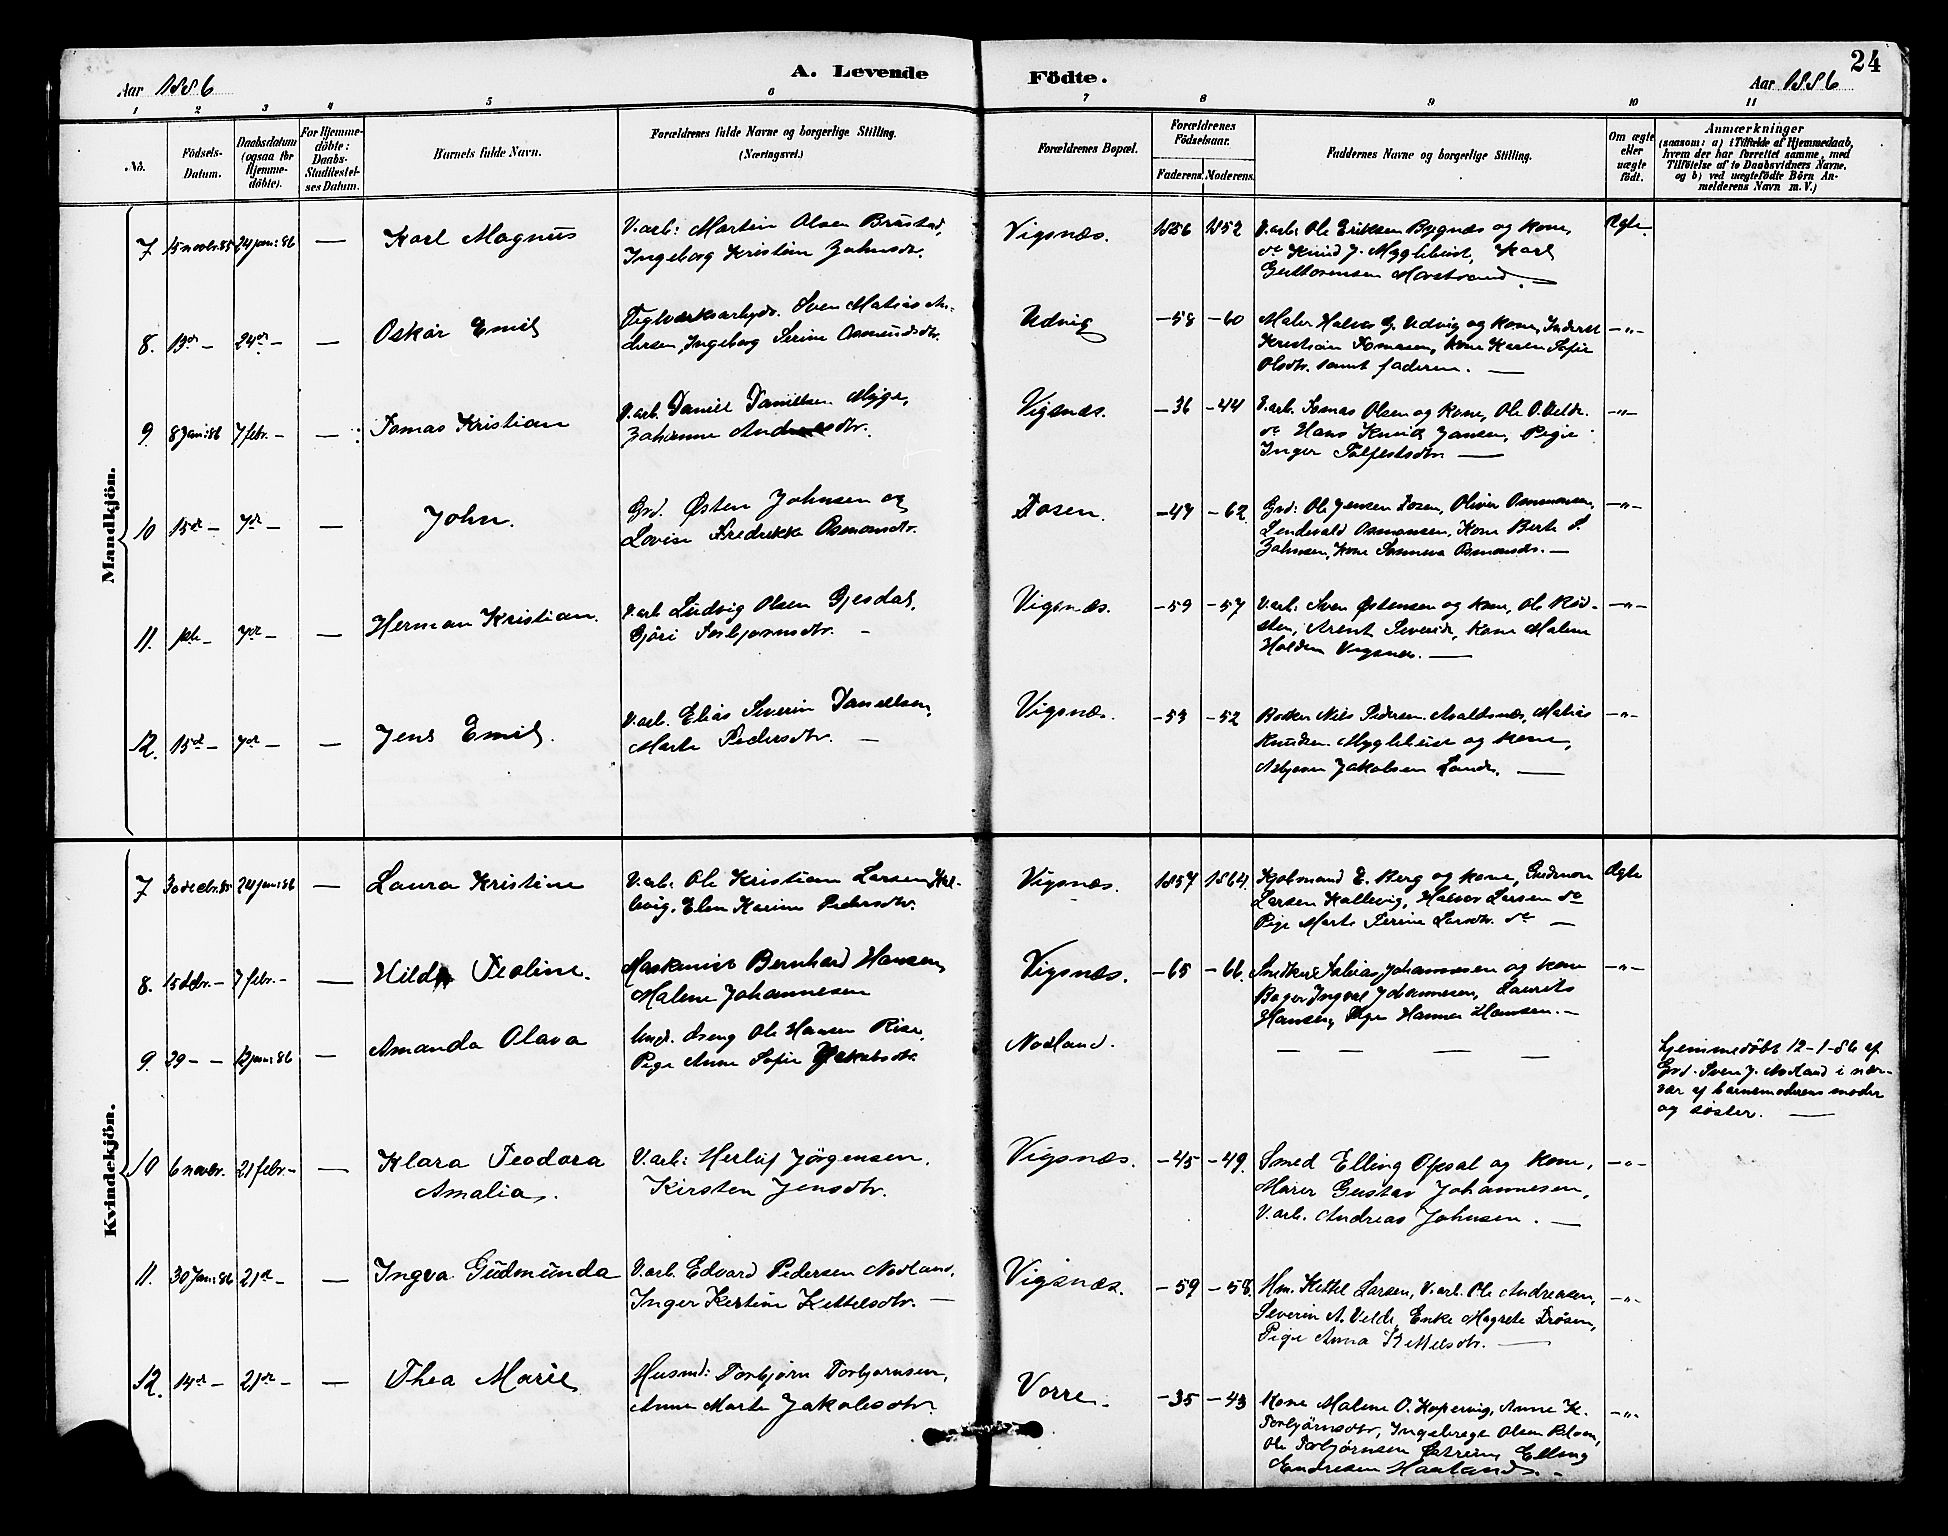 24
Aar 1886
A. Levende
Födte.
Aar 1886
1 2 3 4 5 6 7 8 9 10 11
No.
Födsels-
Datum.
Daabsdatum
(ogsaa for
Hjemme-
döbte).
For Hjemme-
döbte:
Daabs-
Stadfæstel-
ses Datum.
Barnets fulde Navn.
Forældrenes fulde Navne og borgerlige Stilling.
(Næringsvei.)
Forældrenes Bopæl.
Forældrenes
Födselsaar.
Faderens. Moderens.
Faddernes Navne og borgerlige Stilling.
Om ægte
eller
uægte
födt.
Anmærkninger
(saasom: a) i Tilfælde af Hjemmedaab,
hvem der har forrettet samme, med
Tilföielse af to Daabsvidners Navne,
og b) ved uægtefödte Börn An-
melderens Navn m. V.)
Mandkjön.
7 15 novbr. 85 24 jan: 86 — Karl Magnus
V.arb: Martin Olsen Brustad,
Ingeborg Kristine Johnsdr.
Vigsnæs. 1856 1852
V.arb: Ole Eriksen Bygnæs og Kone,
do Knud J. Myglebust, Karl
Guttormsen Morstrand. —
Ægte.
8. 19de — 24de — — Oskar Emil
Teglværksarbejdr. Sven Matias An-
dersen, Ingeborg Serine Osmundsdtr.
Udvig — 58 — 60
Maler Halvor G. Udvig og Kone, Inderst
Kristian Tomasen, Kone Karen Sofie
Olsdtr. samt faderen. —
— „ —
9 8 jan: 86 7 febr. — — Tomas Kristian
V.arb. Daniel Danielsen Myge,
Johanne Andreasdtr.
Vigsnæs. — 36 — 44
V.arb. Tomas Olsen og Kone, Ole O. Velde.
do Hans Knud Jansen, Pige
Inger Tolfestsdtr —
— „ —
10 15de — 7de — — John.
Grd. Østen Johnsen og
Lovise Fredrikke Osmundsdtr.
Dosen. — 47 — 62
Grd: Ole Jensen Dosen, Oliver Osmonsen,
Lendevald Osmonsen, Kone Berte S.
Johnsen, Kone Sunneva Osmundsdr. —
— „ —
11. — 7de — — Herman Kristian.
V.arb Ludvig Olsen Gjesdal,
Gjöri Torbjornsdtr. —
Vigsnæs. — 59 — 57
V.arb: Sven Østensen og Kone, Ole Röd-
sten, Arent Severid, Kone Malene
Holden Vigsnæs. —
— „ —
12. 15de — 7de — — Jens Emil.
V.arb. Elias Severin Danielsen,
Marte Pedersdtr. —
Vigsnæs. — 53 — 52
Bødker Nils Pedersen. Avaldsnæs, Matias
Knudsen. Myglebust og Kone,
Asbjørn Jakobsen Lande. —
— „ —
Kvindekjön.
7 30 decbr. 85 24 jan: 86 — Laura Kristine
V.arb: Ole Kristian Larsen Kal-
levig, Elen Karine Pedersdtr.
Vigsnæs. 1857 1864.
Kjøbmand E. Berg og Kone, Gudmon
Larsen Kallevig, Halvor Larsen do
Pige Marte Serine Larsdtr. do —
Ægte
8. 15 debr. — 7 febr. — — Hilda Teoline.
Maskinist Bernhard Hansen,
Malene Johannesen
Vigsnæs. — 65 — 66.
Snedker Tobias Johannesen og Kone
Bager Ingval Johannesen, Laurits
Hansen, Pige Hanna Hansen. —
— „ —
9. 29 — — 12 jan: 86 — Amanda Olava
Ungd. dreng Ole Hansen Risø,
Pige Anne Sofie Jakobsdtr.
Nodland. — — — —
hjemmedøbt 12-1-86 af
Grd. Sven J. Nodland i nær-
vær af barnemoderens moder
og søster. —
10 6 novbr. 21 febr. — — Klara Teodora
Amalia.
V.arb: Herluf Jörgensen.
Kirsten Jensdtr.
Vigsnæs. — 45 — 49.
Smed Elling Opsal og Kone,
Murer Gustav Johannesen,
V.arb. Andreas Johnsen. —
— „ —
11. 30 Jan: 86 21de — — Ingva Gudmunda
V.arb. Edvard Pedersen Nodland,
Inger Kristine Kittelsdtr. —
Vigsnæs. — 59 — 58.
Hm. Kittel Larsen, V.arb. Ole Andreasen,
Severin A. Velde, Enke Magrete Drösen,
Pige Anna Kittelsdtr. —
— „ —
12. 14de — 21de — — Thea Marie
Husmd: Torbjörn Torbjørnsen,
Anne Marte Jakobsdtr.
Vorre. — 35 — 43
Kone Malene O. Kopervig, Anne K.
Torbjørnsdtr, Ingebregt Olsen
Ole Torbjørnsen Elling
Endresen Haaland. —
— „ —